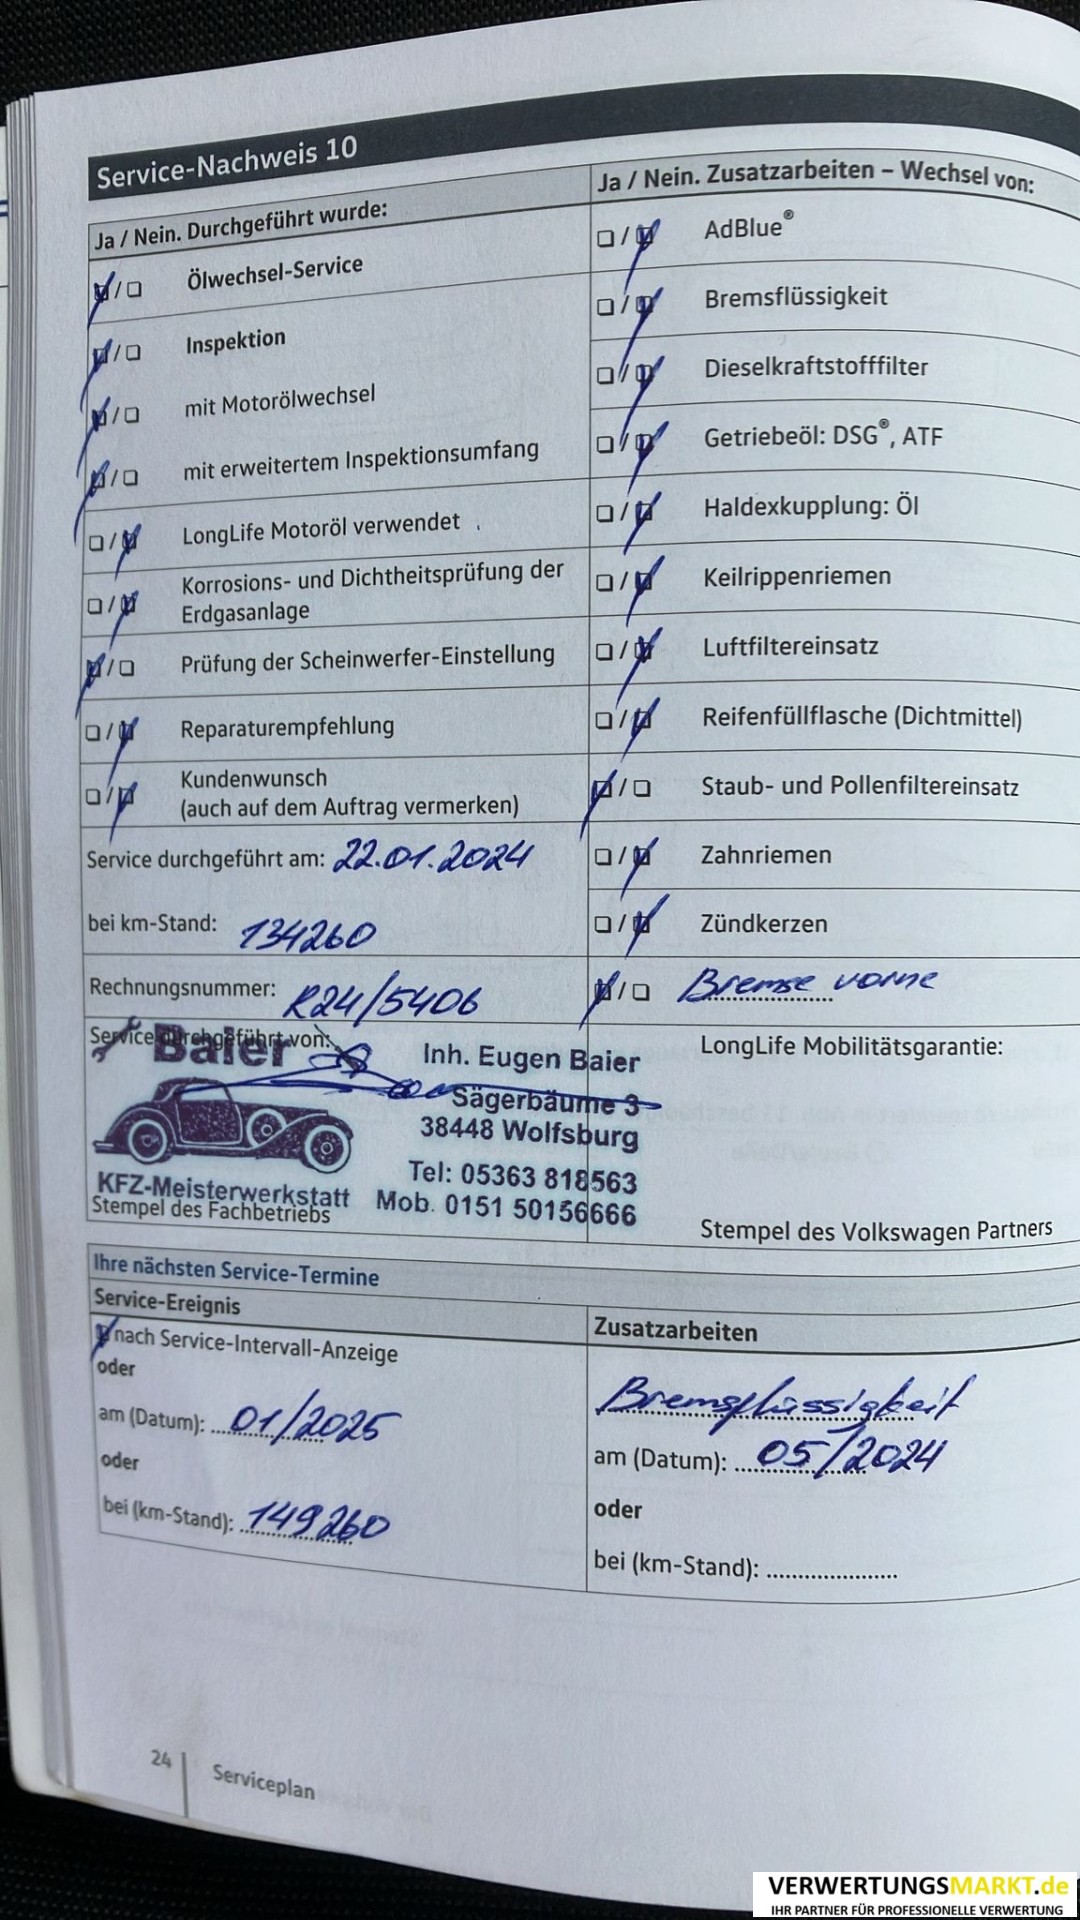 Service-Nachweis 10
Ja / Nein. Durchgeführt wurde:
Ölwechsel-Service
Inspektion
mit Motorölwechsel
mit erweitertem Inspektionsumfang
LongLife Motoröl verwendet
Korrosions- und Dichtheitsprüfung der
Erdgasanlage
Prüfung der Scheinwerfer-Einstellung
Reparaturempfehlung
Kundenwunsch
(auch auf dem Auftrag vermerken)
Service durchgeführt am: 22.01.2024
bei km-Stand: 134260
Rechnungsnummer: R24/5406
Service durchgeführt von:
Baier
KFZ-Meisterwerkstatt
Inh. Eugen Baier
Sägerbäume 3
38448 Wolfsburg
Tel: 05363 818563
Mob. 0151 50156666
Stempel des Fachbetriebs
Ja / Nein. Zusatzarbeiten – Wechsel von:
AdBlue®
Bremsflüssigkeit
Dieselkraftstofffilter
Getriebeöl: DSG®, ATF
Haldexkupplung: Öl
Keilrippenriemen
Luftfiltereinsatz
Reifenfüllflasche (Dichtmittel)
Staub- und Pollenfiltereinsatz
Zahnriemen
Zündkerzen
Bremse vorne
LongLife Mobilitätsgarantie:
Stempel des Volkswagen Partners
Ihre nächsten Service-Termine
Service-Ereignis
nach Service-Intervall-Anzeige
oder
am (Datum): 01/2025
oder
bei (km-Stand): 149260
Zusatzarbeiten
Bremsflüssigkeit
am (Datum): 05/2024
oder
bei (km-Stand): ......................
24 Serviceplan
VERWERTUNGSMARKT.de
IHR PARTNER FÜR PROFESSIONELLE VERWERTUNG